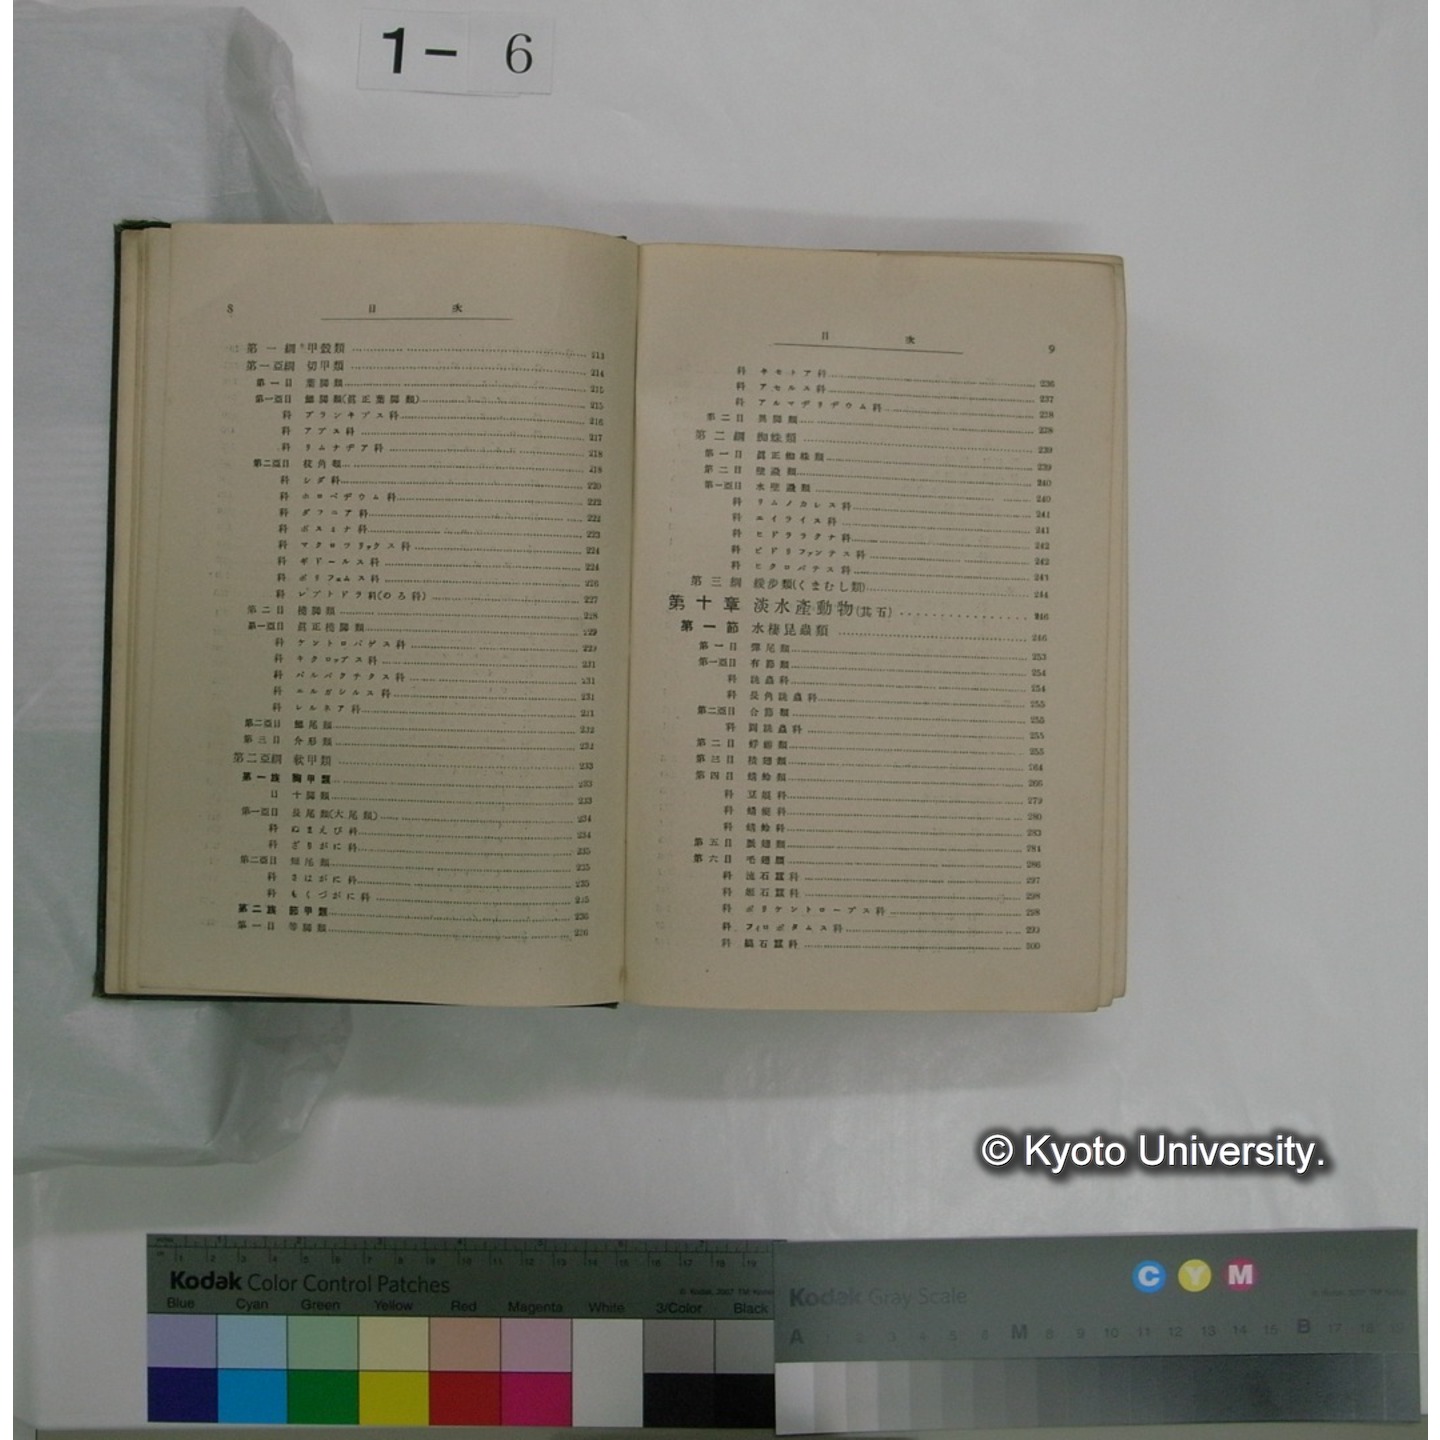 1- 6
8 目 次
第一綱 甲殼類 213
第一亞綱 切甲類 214
第一目 葉脚類 215
第一亞目 鰓脚類(眞正葉脚類) 215
科 ブランキプス科 216
科 アプス科 217
科 リムナヂア科 218
第二亞目 枝角類 218
科 シダ科 220
科 ホロペヂウム科 222
科 ダフニア科 222
科 ボスミナ科 223
科 マクロツリックス科 224
科 ギドールス科 224
科 ポリフェムス科 226
科 レプトドラ科(のろ科) 227
第二目 橈脚類 228
第一亞目 眞正橈脚類 229
科 ケントロパゲス科 229
科 キクロップス科 231
科 ハルパクチクス科 231
科 エルガシルス科 231
科 レルネア科 231
第二亞目 鰓尾類 232
第三目 介形類 232
第二亞綱 軟甲類 233
第一族 胸甲類 233
目 十脚類 233
第一亞目 長尾類(大尾類) 234
科 ぬまえび科 234
科 ざりがに科 235
第二亞目 短尾類 235
科 さはがに科 235
科 もくづがに科 235
第二族 節甲類 236
第一目 等脚類 236
目 次 9
科 キモトア科 236
科 アセルス科 237
科 アルマデリヂウム科 238
第二目 異脚類 238
第二綱 蜘蛛類 239
第一目 眞正蜘蛛類 239
第二目 壁蝨類 240
第一亞目 水壁蝨類 240
科 リムノカレス科 241
科 エイライス科 241
科 ヒドララクナ科 242
科 ヒドリファンテス科 242
科 ヒグロバテス科 243
第三綱 緩步類(くまむし類) 244
第十章 淡水產動物(其五) 246
第一節 水棲昆蟲類 246
第一目 彈尾類 253
第一亞目 有節類 254
科 跳蟲科 254
科 長角跳蟲科 255
第二亞目 合節類 255
科 圓跳蟲科 255
第二目 蜉蝣類 255
第三目 積翅類 264
第四目 蜻蛉類 266
科 豆娘科 279
科 蜻蜓科 280
科 蜻蛉科 283
第五目 脈翅類 284
第六目 毛翅類 286
科 流石蠶科 297
科 姬石蠶科 298
科 ポリケントロープス科 298
科 フィロポタムス科 299
科 縞石蠶科 300
© Kyoto University.
Kodak Color Control Patches
Blue Cyan Green Yellow Red Magenta White 3/Color Black
Kodak Gray Scale
C Y M
A 1 2 3 4 5 6 M 8 9 10 11 12 13 14 15 B 17 18 19